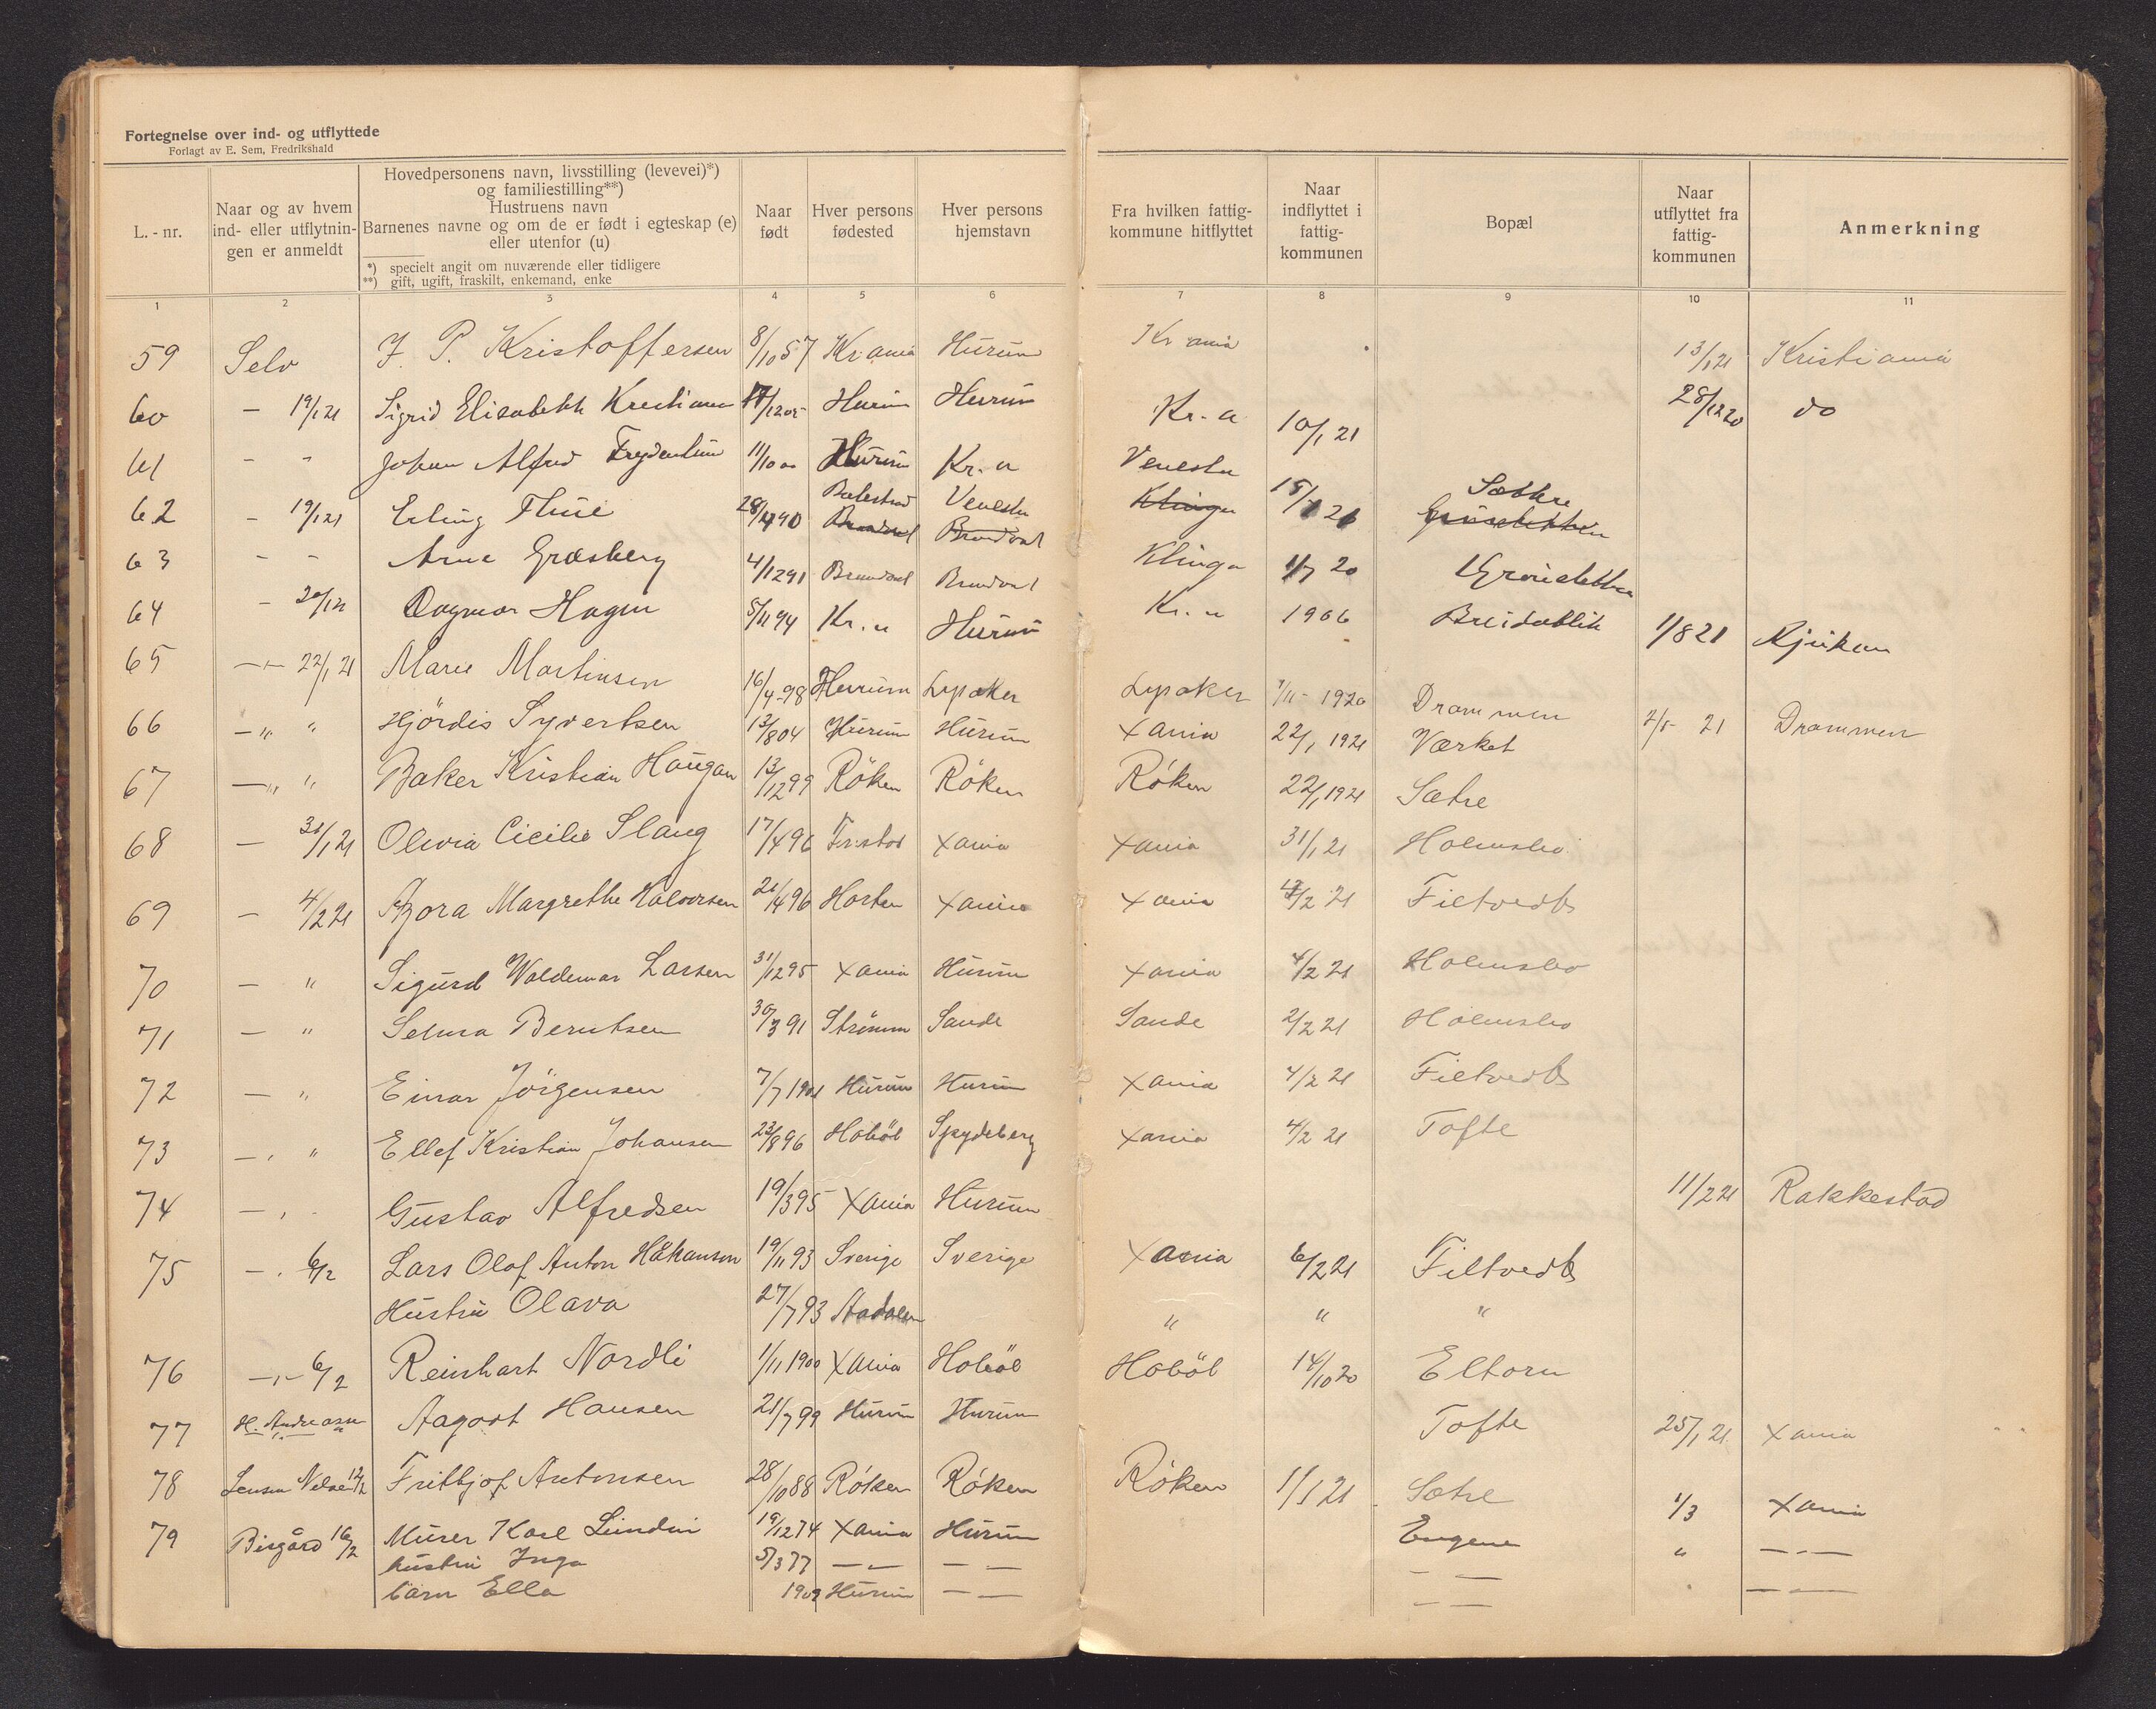 Fortegnelse over ind- og utflyttede
Forlagt av E. Sem, Fredrikshald
L.-nr.
Naar og av hvem ind- eller utflytningen er anmeldt
Hovedpersonens navn, livsstilling (levevei)*)
og familiestilling**)
Hustruens navn
Barnenes navne og om de er født i egteskap (e)
eller utenfor (u)
*) specielt angit om nuværende eller tidligere
**) gift, ugift, fraskilt, enkemand, enke
Naar født
Hver persons fødested
Hver persons hjemstavn
Fra hvilken fattigkommune hitflyttet
Naar indflyttet i fattigkommunen
Bopæl
Naar utflyttet fra fattigkommunen
Anmerkning
1 2 3 4 5 6 7 8 9 10 11
59 Selv J. P. Kristoffersen 8/10 57 Kr.ania Hurum Kr ania 13/1 21 Kristiania
60 — 19/1 21 Sigrid Elisabeth 17/12 05 Hurum Hurum 28/12 20 do
61 " " Johan Alfred Frydenlun 11/10 00 Hurum Kr.a Kr.a 10/1 21
62 — 19/1 21 Erling Thue 28/4 90 Balestrand Venesla Venesla 15/1 21 Sætkre
63 " " Arne Græsberg 4/12 91 Brandval Brandval Klinga 1/7 20
64 — 20/1 21 Dagmar Hagen 5/11 94 Kr.a Hurum Kr.a 1906 Breidablik 1/8 21 Rjukan
65 —"— 22/1 21 Marie Martinsen 16/4-98 Hurum Lysaker Lysaker 1/11-1920 Drammen 2/5- 21 Drammen
66 —" " Hjördis Syvertsen 13/8 04 Hurum Hurum Xania 22/1 1921 Værket
67 —" " Baker Kristian Haugan 13/12 99 Röken Röken Röken 22/1 1921 Sætre
68 — 31/1 21 Olivia Cicilie Slaug 17/4 96 Xania Xania 31/1 21 Holmsbo
69 — 4/2 21 Margrethe Halvorsen Horten Xania Xania 4/2 21 Filtvedt
70 — " Sigurd Waldemar Larsen 31/12 95 Xania Hurum Xania 4/2 21 Holmsbo
71 — " Selma Berntsen 30/3 91 Strömm Sande Sande 2/2 21 Holmsbo
72 — " Einar Jörgensen 7/7 1901 Hurum Hurum Xania 4/2 21 Filtvedt
73 —" " Ellef Kristian Johansen 23/8 96 Hoböl Spydeberg Xania 4/2 21 Tofte
74 — " Gustav Alfredsen 19/3 95 Xania Hurum 11/2 21 Rakkestad
75 —" 6/2 Lars Olof Anton Håkanson 19/11 93 Sverige Sverige Xania 6/2 21 Filtvedt
Hustru Olava 27/7 93 Aadalen " " "
76 —"— 6/2 Reinhart Nordli 1/11 1900 Xania Hoböl Hoböl 14/10 20 Eltorn
77 H. Andreasen Aagodt Hansen 21/7 99 Hurum Hurum Tofte 25/1 21 Xania
78 12/2 Fritbjof Antonsen 28/10 88 Röken Röken Röken 1/1 21 Sætre
79 Bisgård 16/2 Murer Karl Lundin 19/12 74 Xania Hurum Engene 1/3 Xania
hustru Inga 5/3 77 —"— —"— —"— " —"—
barn Ella 1909 Hurum —"— —"— —"—